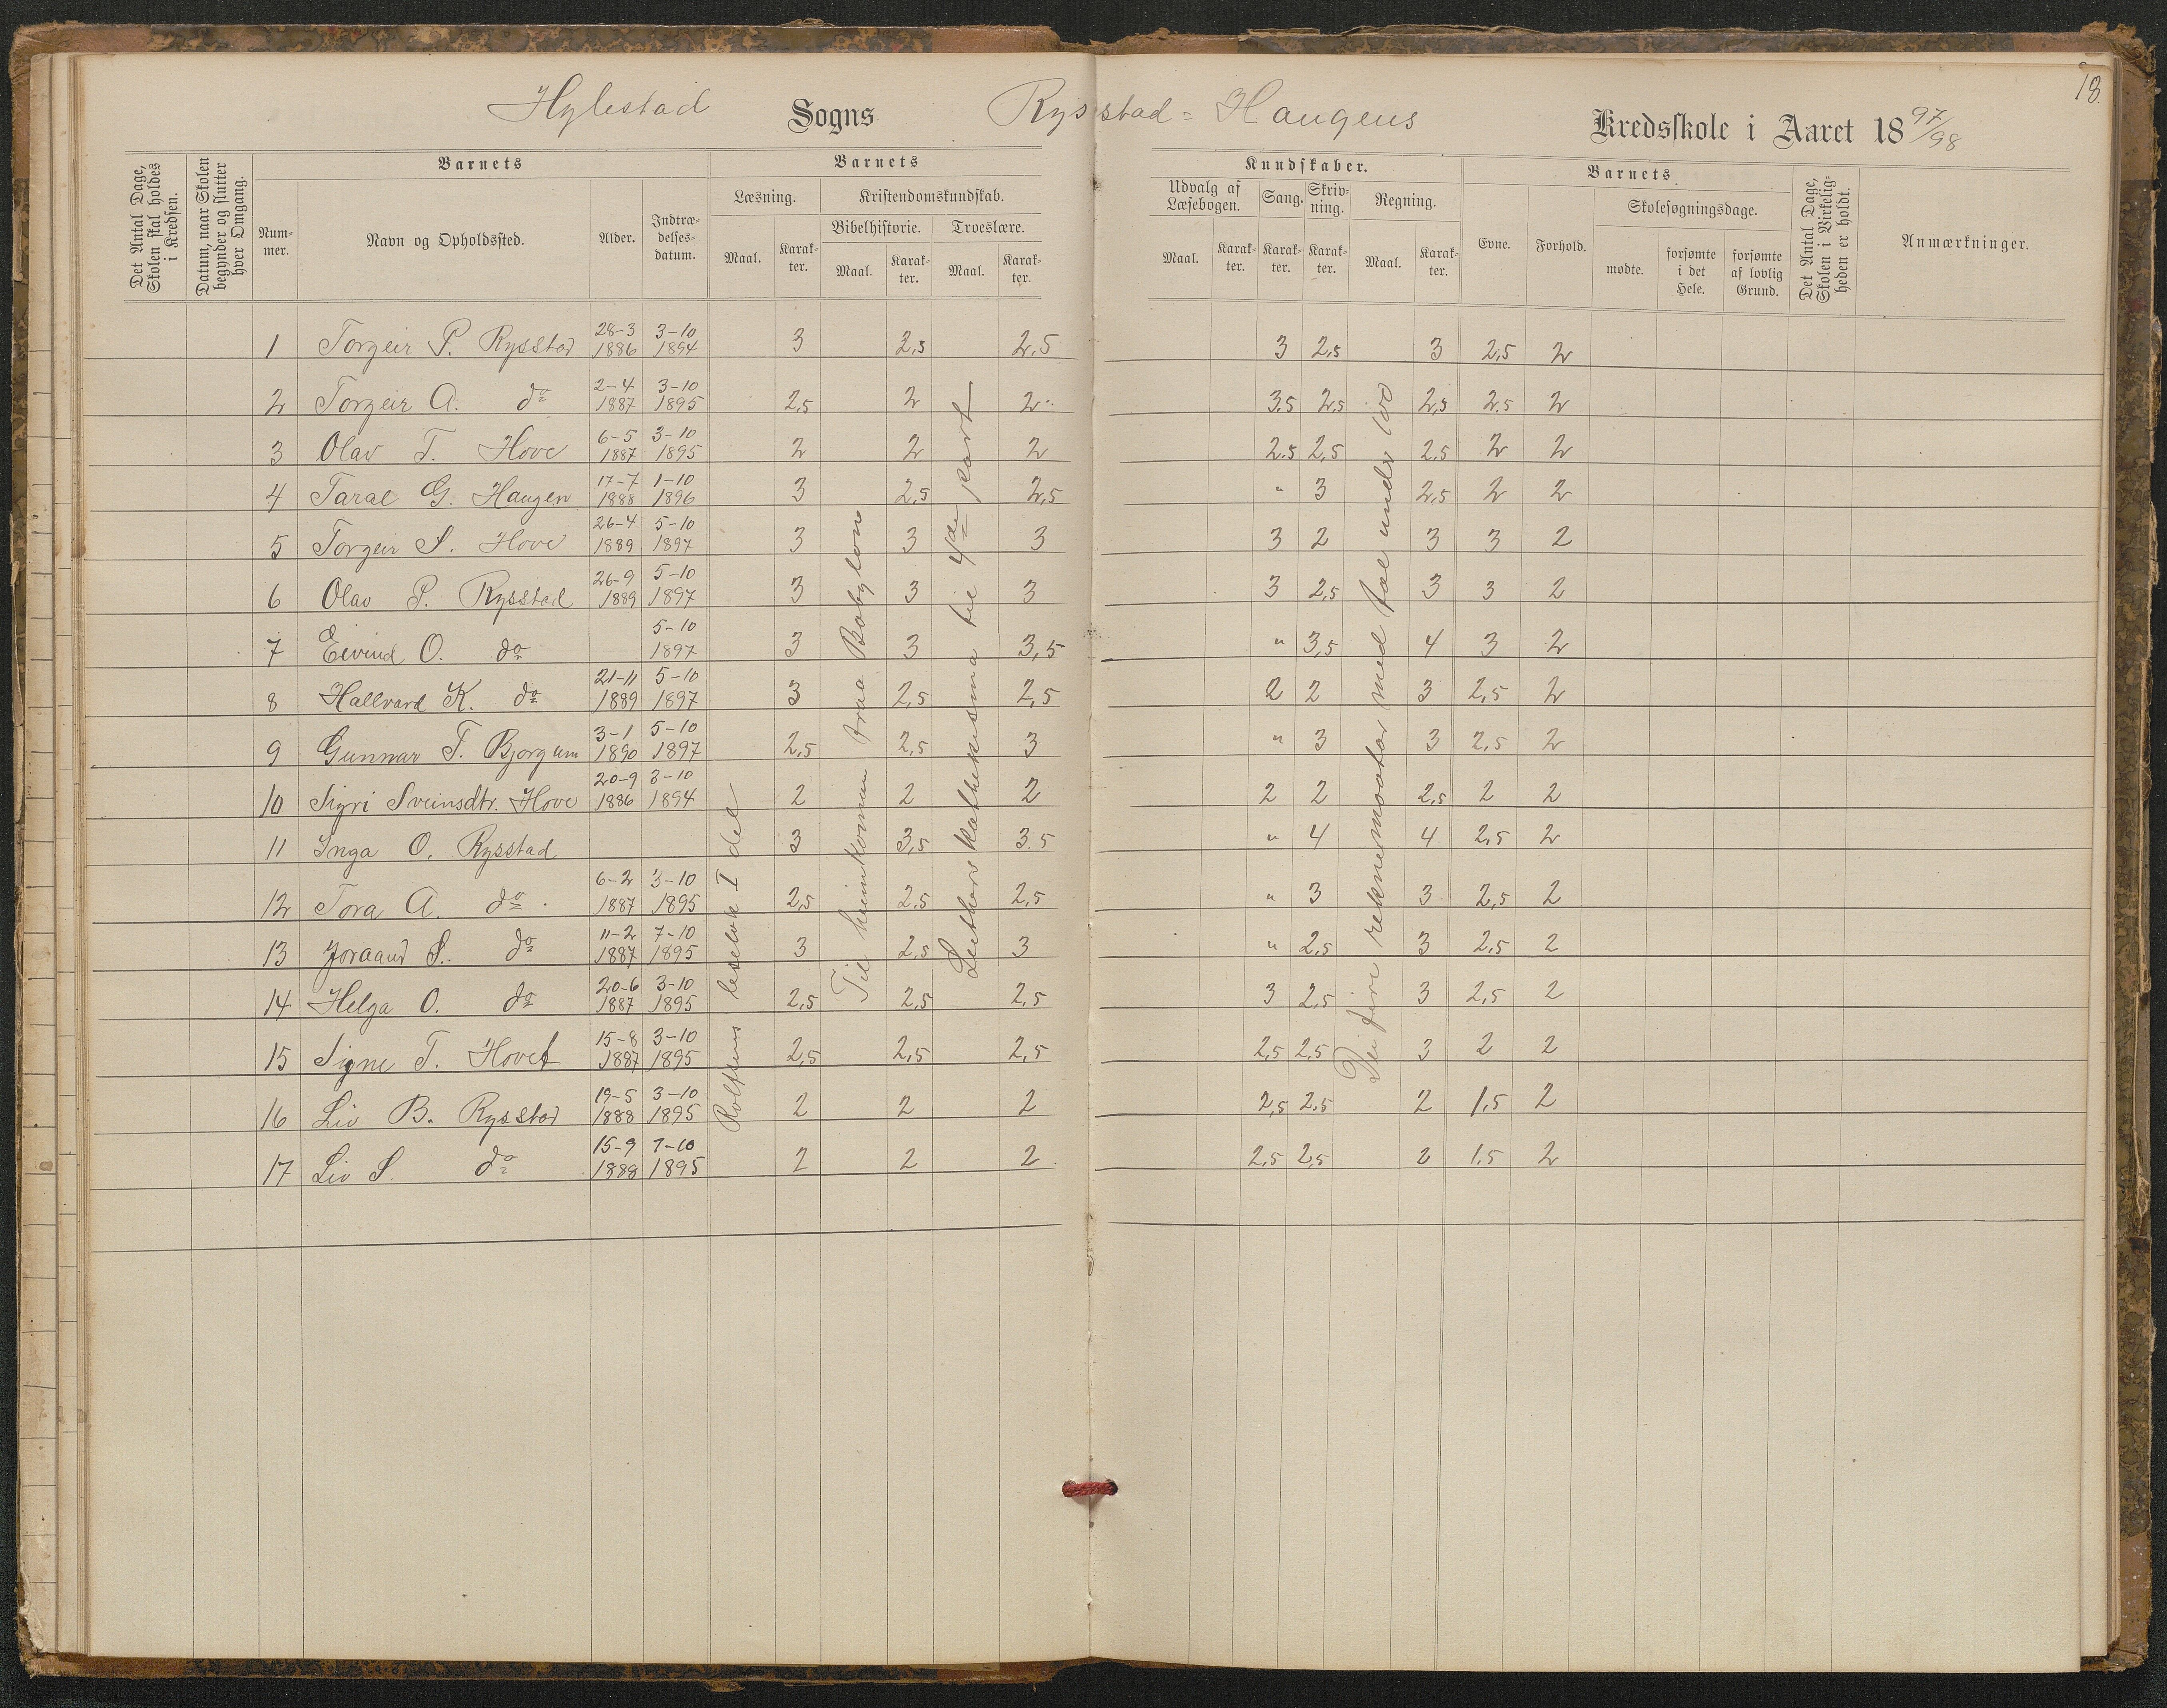 18.
Hylestad Sogns Rysstad-Haugens Kredsskole i Aaret 1897/98
Det Antal Dage, Skolen skal holdes i Kredsen.
Datum, naar Skolen begynder og slutter hver Omgang.
Barnets
Num-mer.
Navn og Opholdssted.
Alder.
Indtræ-delses-datum.
Barnets
Læsning.
Maal.
Karak-ter.
Kristendomskundskab.
Bibelhistorie. Troeslære.
Maal.
Karak-ter.
Maal.
Karak-ter.
Kundskaber.
Udvalg af Læsebogen.
Maal.
Karak-ter.
Sang.
Karak-ter.
Skriv-ning.
Karak-ter.
Regning.
Maal.
Karak-ter.
Barnets
Evne.
Forhold.
Skolesøgningsdage.
mødte.
forsømte i det Hele.
forsømte af lovlig Grund.
Det Antal Dage, Skolen i Virkelig-heden er holdt.
Anmærkninger.
1 Torgeir P. Rysstad 28-3 1886 3-10 1894 3 2,5 2,5 3 2,5 3 2,5 2
2 Torgeir A. do 2-4 1887 3-10 1895 2,5 2 2 3,5 2,5 2,5 2.5 2
3 Olav T. Hove 6-5 1887 3-10 1895 2 2 2 2.5 2,5 2,5 2 2
4 Taral G. Haugen 17-7 1888 1-10 1896 3 2,5 2,5 " 3 2,5 2 2
5 Torgeir S. Hove 26-4 1889 5-10 1897 3 3 3 3 2 3 3 2
6 Olav P. Rysstad 26-9 1889 5-10 1897 3 3 3 3 2,5 3 3 2
7 Eivind O. do 5-10 1897 3 3 3,5 " 3,5 4 3 2
8 Hallvard K. do 21-11 1889 5-10 1897 3 2,5 2,5 2 2 3 2,5 2
9 Gunnar T. Bjorgum 3-1 1890 5-10 1897 2,5 2,5 3 " 3 3 2,5 2
10 Sigri Sveinsdtr. Hove 20-9 1886 3-10 1894 2 2 2 2 2 2,5 2 2
11 Inga O. Rysstad 3 3,5 3.5 " 4 4 2,5 2
12 Tora A. do 6-2 1887 3-10 1895 2,5 2,5 2,5 " 3 3 2,5 2
13 Joraand S. do 11-2 1887 7-10 1895 3 2,5 3 " 2,5 3 2,5 2
14 Helga O. do 20-6 1887 3-10 1895 2,5 2,5 2,5 3 2,5 3 2,5 2
15 Signe T. Hovet 15-8 1887 3-10 1895 2,5 2,5 2,5 2,5 2,5 3 2 2
16 Liv B. Rysstad 19-5 1888 3-10 1895 2 2 2 2,5 2,5 2 1,5 2
17 Liv S. do 15-9 1888 7-10 1895 2 2 2 2,5 2,5 2 1.5 2
Rolfsens lesebok I del
Til heimkoman fraa Babylon
Luthers katekisma til 4de part
Dei fire reknemaatar med tal under 100